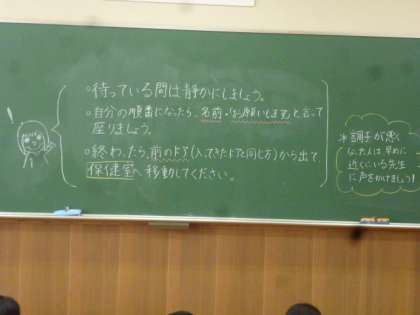 !
○待っている間は静かにしましょう。
○自分の順番になったら、名前、「お願いします」と言って
座りましょう。
○終わったら、前のドア(入ってきたドアと同じ方)から出て
保健室へ移動してください。
*調子が悪く
なった人は早めに
近くにいる先生
に声をかけましょう!